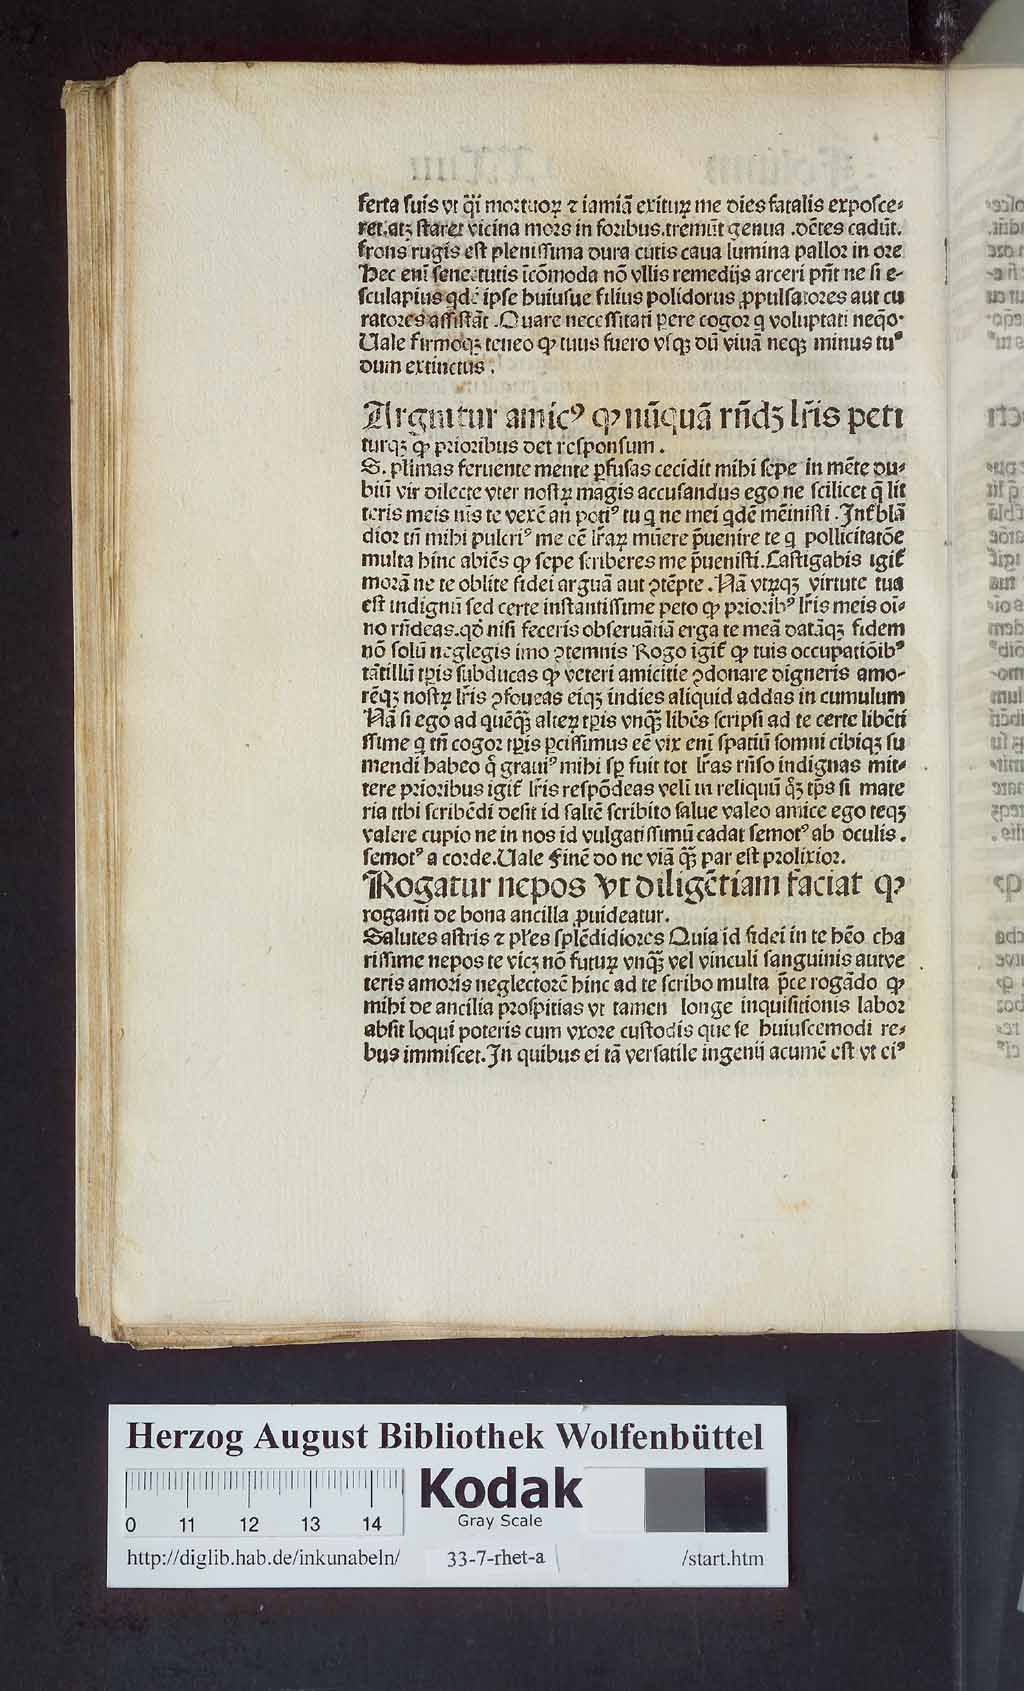 ferta suis vt q̃i mortuoꝝ ⁊ iamiã exituꝝ me dies fatalis exposce⸗
ret.atꝫ staret vicina mors in foribus.tremũt genua .dẽtes cadũt.
frons rugis est plenissima dura cutis caua lumina pallor in ore
Hec enĩ senectutis ĩcõmoda nõ vllis remedijs arceri pñt ne si e⸗
sculapius qdẽ ipse huiusue filius polidorus ꝓpulsatores aut cu
ratores assistãt .Quare necessitati pere cogor q voluptati neq̃o⸗
Uale firmoqꝫ teneo ꝙ tuus fuero vsqꝫ dũ viuã neqꝫ minus tuꝰ
dum extinctus .
Arguitur amicꝰ ꝙ nũquã rñdꝫ lr̃is peti
turqꝫ ꝙ prioribus det responsum .
S. plimas feruente mente ꝑfusas cecidit mihi sepe in mẽte du⸗
biũ vir dilecte vter nostꝝ magis accusandus ego ne scilicet q̃ lit
teris meis nĩs te vexẽ an potiꝰ tu q ne mei qdẽ mẽinisti .Int̃ blã
dior tñ mihi pulcriꝰ me eẽ lr̃aꝝ mũere p̃uenire te q pollicitatõe
multa hinc abiẽs ꝙ sepe scriberes me p̃uenisti.Castigabis igit̃
morã ne te oblite fidei arguã aut ꝯtẽpte .Nã vtꝝqꝫ virtute tua
est indignũ sed certe instantissime peto ꝙ prioribꝰ lr̃is meis oĩ⸗
no rñdeas.qd̾ nisi feceris obseruãtiã erga te meã datãqꝫ fidem
nõ solũ neglegis imo ꝯtemnis Rogo igit̃ ꝙ tuis occupatiõibꝰ
tãtillũ tꝑis subducas ꝙ veteri amicitie ꝯdonare digneris amo⸗
rẽqꝫ nostꝝ lr̃is ꝯfoueas eiqꝫ indies aliquid addas in cumulum
Nã si ego ad quẽqꝫ̃ alteꝝ tꝑis vnqꝫ̃ libẽs scripsi ad te certe libẽti
ssime q tñ cogor tꝑis ꝑcissimus eẽ vix enĩ spatiũ somni cibiqꝫ su
mendi habeo q̃ grauiꝰ mihi sꝑ fuit tot lr̃as rñso indignas mit⸗
tere prioribus igit̃ lr̃is respõdeas velĩ in reliquũ q̃ꝫ tꝑs si mate
ria tibi scribẽdi desit id saltẽ scribito salue valeo amice ego teqꝫ
valere cupio ne in nos id vulgatissimũ cadat semotꝰ ab oculis .
semotꝰ a corde.Uale Finẽ do ne viã qꝫ̃ par est prolixior.
Rogatur nepos vt diligẽtiam faciat ꝙ
roganti de bona ancilla ꝓuideatur.
Salutes astris ⁊ pl̃es splẽdidiores Quia id fidei in te hẽo cha
rissime nepos te vicꝫ nõ futuꝝ vnqꝫ̃ vel vinculi sanguinis autve
teris amoris neglectorẽ hinc ad te scribo multa p̃ce rogãdo ꝙ
mihi de ancilla prospitias vt tamen longe inquisitionis labor
absit loqui poteris cum vxore custodis que se huiuscemodi re⸗
bus immiscet.In quibus ei tã versatile ingenij acumẽ est vt eiꝰ
Herzog August Bibliothek Wolfenbüttel
0 11 12 13 14
Kodak
Gray Scale
http://diglib.hab.de/inkunabeln/ 33-7-rhet-a /start.htm